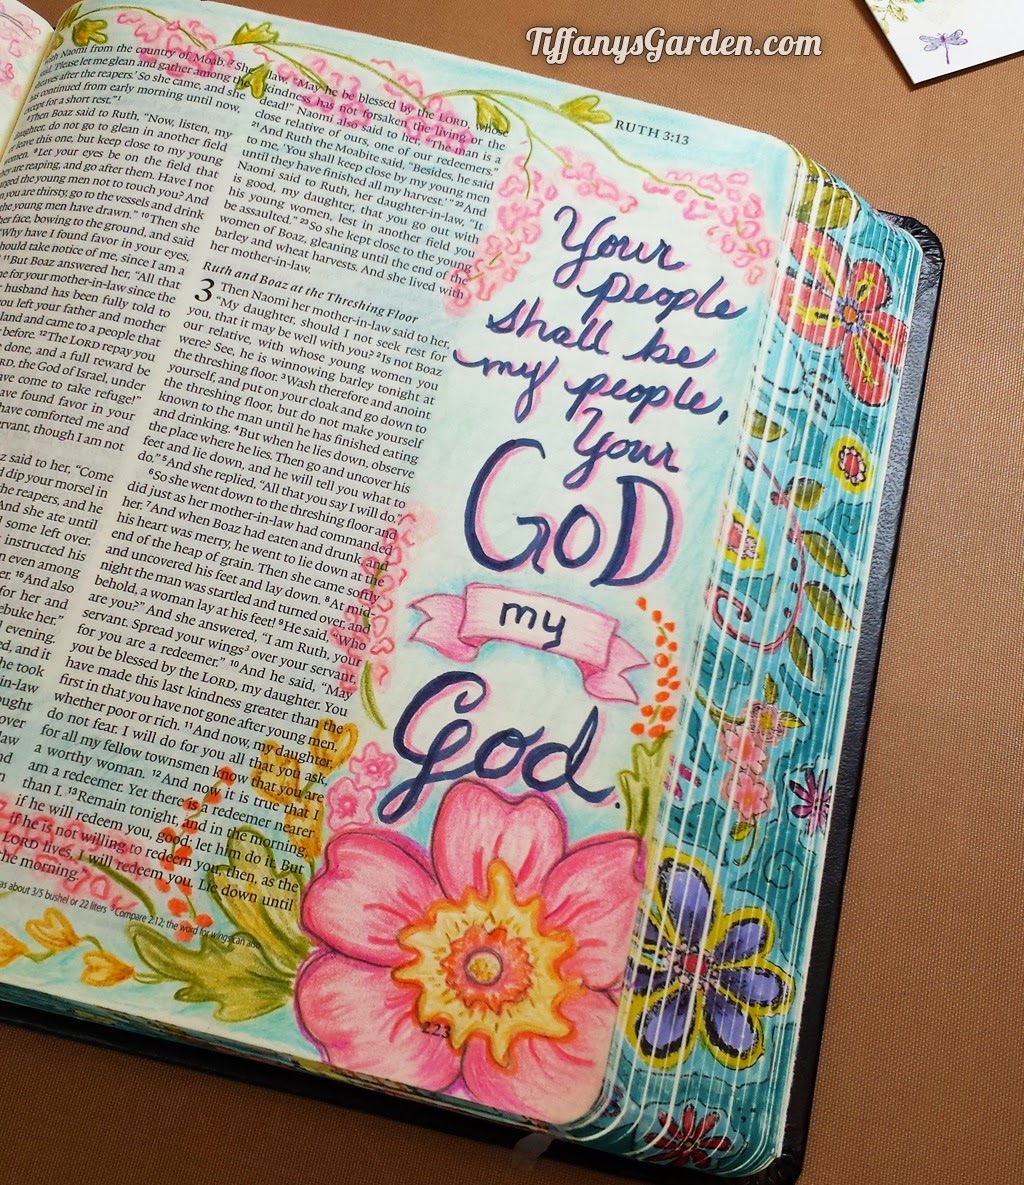 TiffanysGarden.com
RUTH 3:13
with Naomi from the country of Moab. ² She
said, "Please let me glean and gather among the
sheaves after the reapers.' So she came, and she
has continued from early morning until now,
except for a short rest."¹
⁸ Then Boaz said to Ruth, "Now, listen, my
daughter, do not go to glean in another field
or leave this one, but keep close to my young
women. ⁹ Let your eyes be on the field that
they are reaping, and go after them. Have I not
charged the young men not to touch you? And
when you are thirsty, go to the vessels and drink
what the young men have drawn." ¹⁰ Then she
her face, bowing to the ground, and said
"Why have I found favor in your eyes,
should take notice of me, since I am a
¹¹ But Boaz answered her, "All that
done for your mother-in-law since the
husband has been fully told to
you left your father and mother
land and came to a people that
before. ¹² The LORD repay you
done, and a full reward be
LORD, the God of Israel, under
have come to take refuge!"
have found favor in your
have comforted me and
servant, though I am not
Boaz said to her, "Come
and dip your morsel in
the reapers, and he
And she ate until
some left over.
instructed his
even among
her. ¹⁶ And also
for her and
rebuke her."
evening.
and it
she took
in-law
brought
over
law
and
in
law, "May he be blessed by the LORD, whose
kindness has not forsaken the living or the
dead!" Naomi also said to her, "The man is a
close relative of ours, one of our redeemers."
²¹ And Ruth the Moabite said, "Besides, he said
to me, 'You shall keep close by my young men
until they have finished all my harvest.'" ²² And
Naomi said to Ruth, her daughter-in-law, "It
is good, my daughter, that you go out with
his young women, lest in another field you
be assaulted." ²³ So she kept close to the young
women of Boaz, gleaning until the end of the
barley and wheat harvests. And she lived with
her mother-in-law.
Ruth and Boaz at the Threshing Floor
3 Then Naomi her mother-in-law said to her,
"My daughter, should I not seek rest for
you, that it may be well with you? ² Is not Boaz
our relative, with whose young women you
were? See, he is winnowing barley tonight at
the threshing floor. ³ Wash therefore and anoint
yourself, and put on your cloak and go down to
the threshing floor, but do not make yourself
known to the man until he has finished eating
and drinking. ⁴ But when he lies down, observe
the place where he lies. Then go and uncover his
feet and lie down, and he will tell you what to
do." ⁵ And she replied, "All that you say I will do."
⁶ So she went down to the threshing floor and
did just as her mother-in-law had commanded
her. ⁷ And when Boaz had eaten and drunk, and
his heart was merry, he went to lie down at the
end of the heap of grain. Then she came softly
and uncovered his feet and lay down. ⁸ At mid-
night the man was startled and turned over, and
behold, a woman lay at his feet! ⁹ He said, "Who
are you?" And she answered, "I am Ruth, your
servant. Spread your wings³ over your servant,
for you are a redeemer." ¹⁰ And he said, "May
you be blessed by the LORD, my daughter. You
have made this last kindness greater than the
first in that you have not gone after young men,
whether poor or rich. ¹¹ And now, my daughter,
do not fear. I will do for you all that you ask,
for all my fellow townsmen know that you are
a worthy woman. ¹² And now it is true that I
am a redeemer. Yet there is a redeemer nearer
than I. ¹³ Remain tonight, and in the morning,
if he will redeem you, good; let him do it. But
if he is not willing to redeem you, then, as the
LORD lives, I will redeem you. Lie down until
the morning."
was about 3/5 bushel or 22 liters ³ Compare 2:12; the word for wings can also
223
Your
people
shall be
my people,
Your
GOD
my
God.